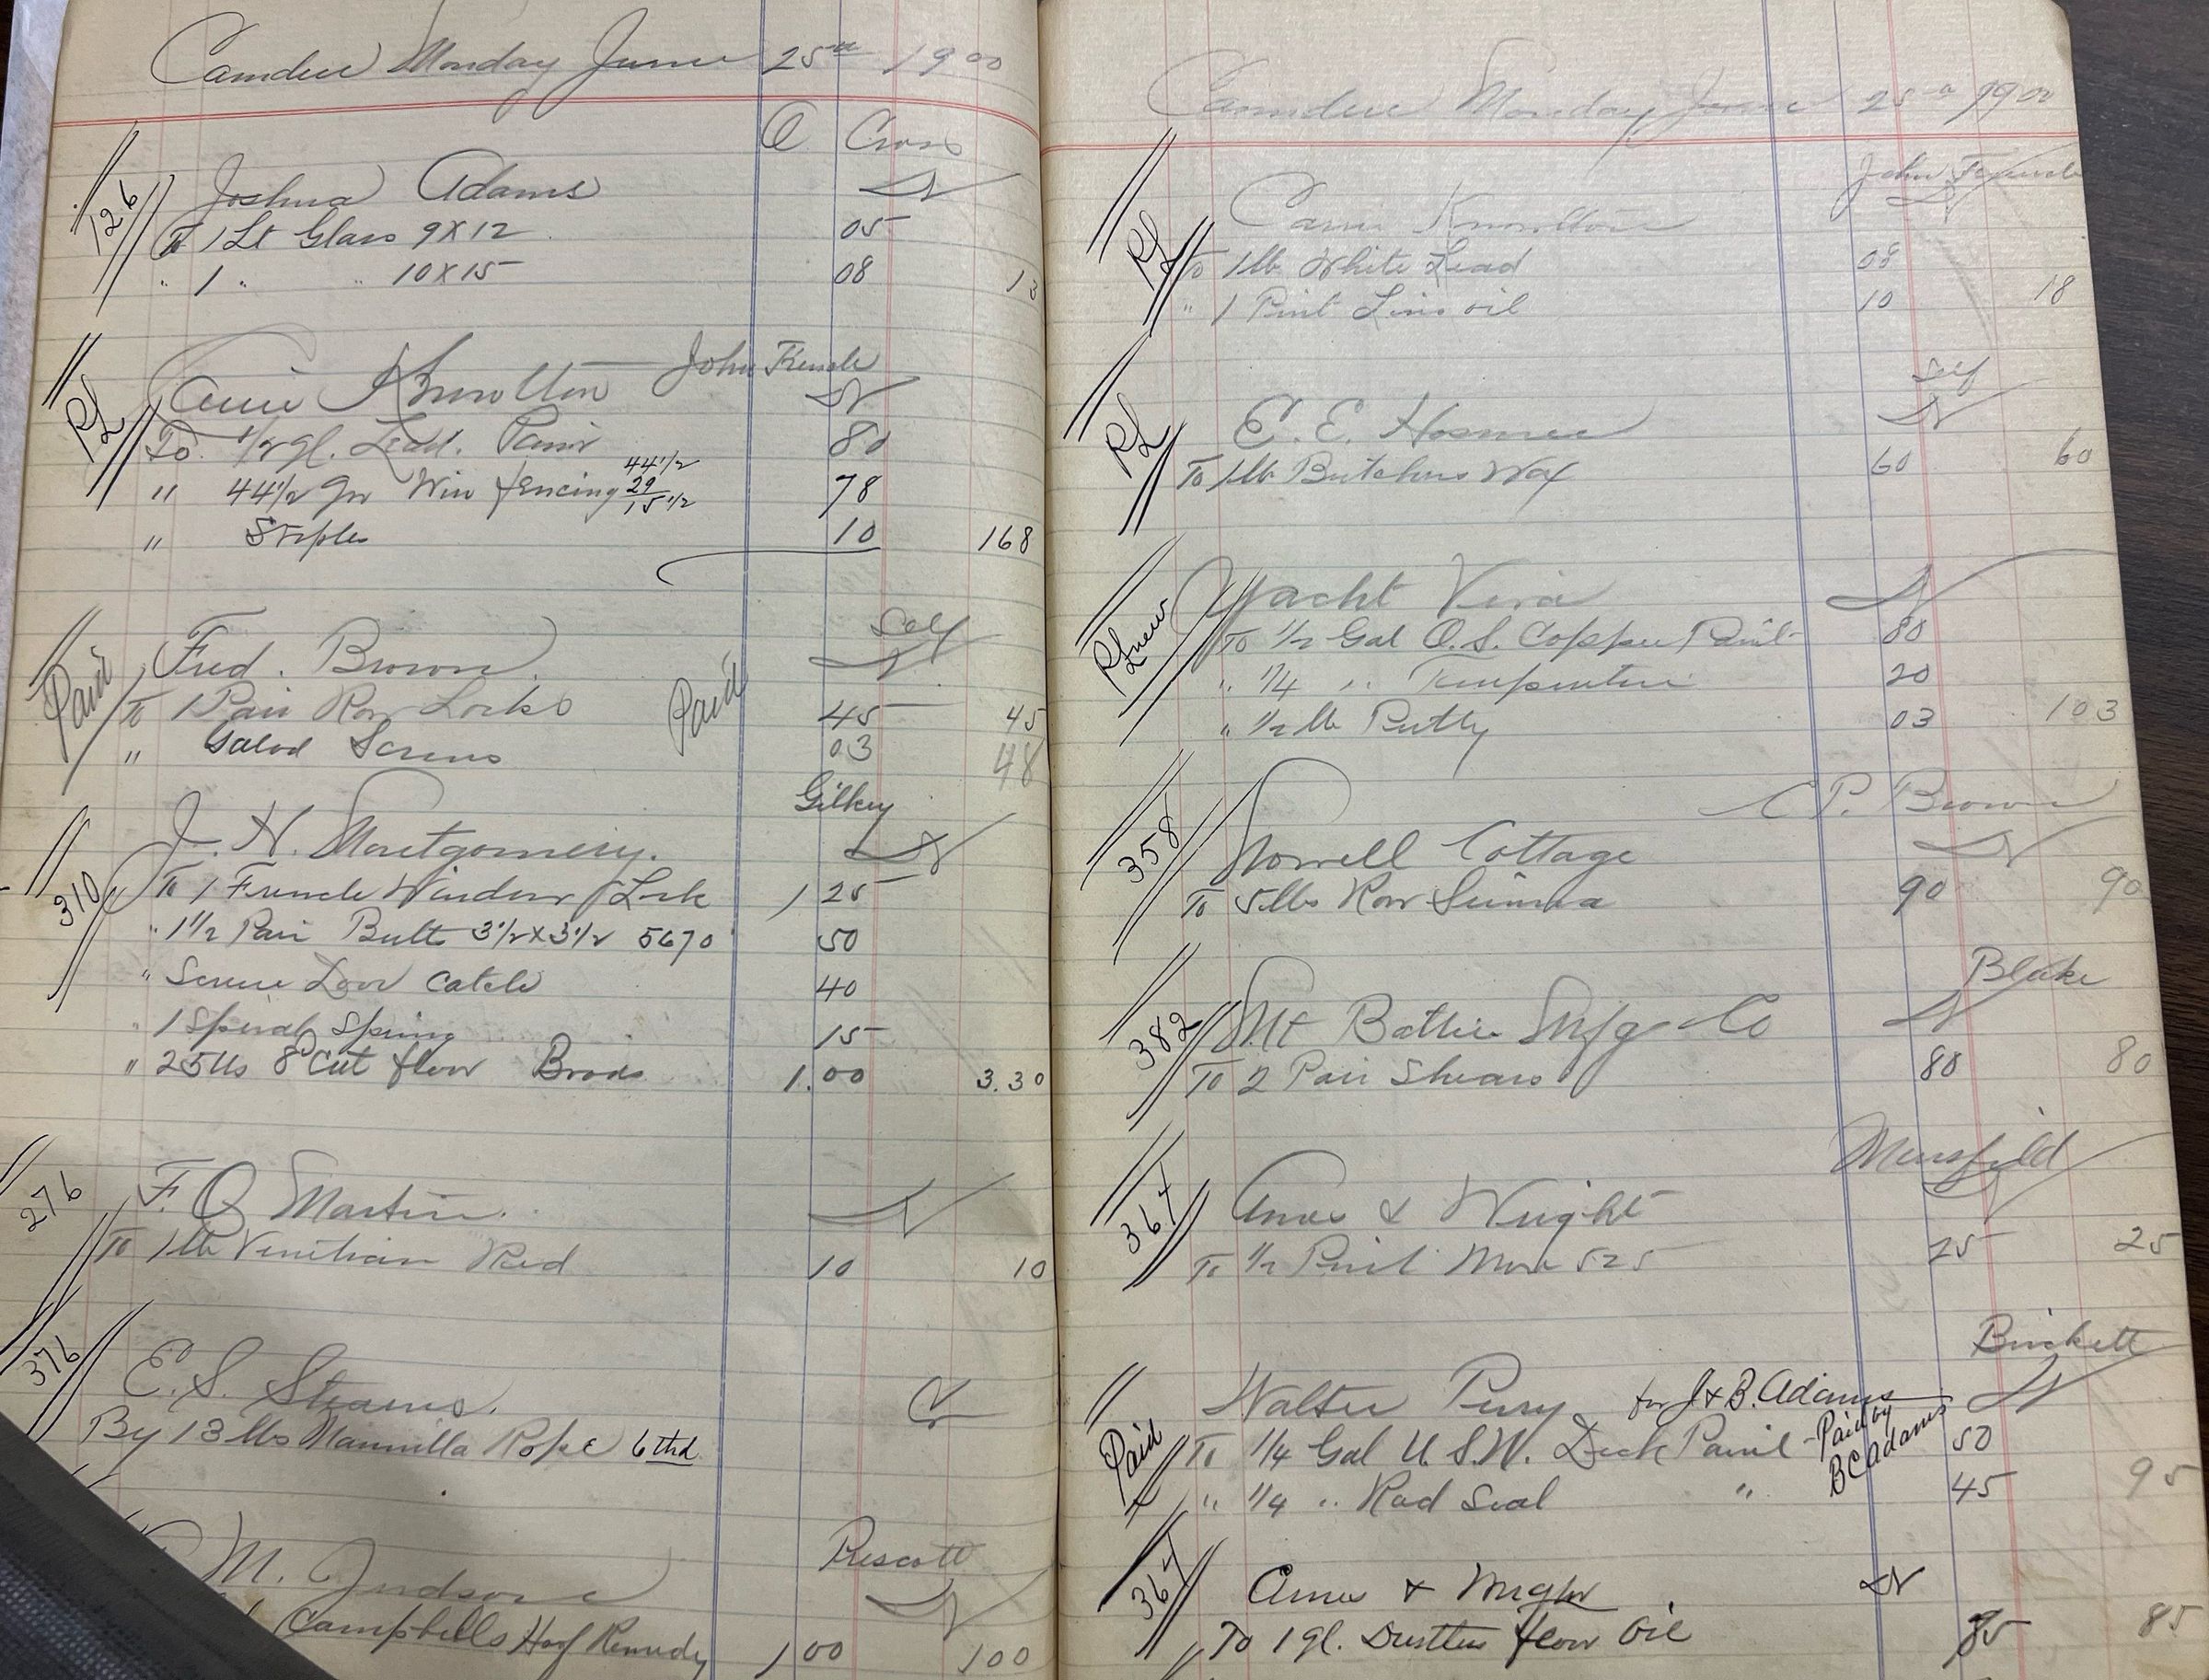 Camden Monday June 25th 1900
O Cross
126 Joshua Adams Dr
To 1 Lt Glass 9X12 05
" 1 " " 10X15 08 13
John French
RL Carrie Knowlton Dr
To 1/2 gl. Lead. Paint 80
44 1/2
" 44 1/2 Wire fencing 29 78
15 1/2
" Staples 10 168
Self
Paid Fred. Brown Dr
To 1 Pair Row Locks Paid 45 45
" Galvd Screws 03 48
Gilkey
310 J. H. Montgomery. Dr
To 1 French Window Lock 1 25
" 1 1/2 Pair Butts 3 1/2 X 3 1/2 5670 50
" Screen Door Catch 40
" 1 Spiral Spring 15
" 25 lbs 8d Cut floor Brads 1.00 3.30
276 F. O Martin. Dr
To 1 lb Venitian Red 10 10
376 E. S. Stearns. Cr
By 13 lbs Mannilla Rope 6 thd
Prescott
M. Judson Dr
Campbells Hoof Remedy 1 00 100
Camden Monday June 25th 1900
John French
RL Carrie Knowlton Dr
To 1 lb White Lead 08
" 1 Pint Lins oil 10 18
Self
RL E. E. Hosmer Dr
To 1 lb Butchers Wax 60 60
RL new Yacht Dr
To 1/2 Gal Copper Paint 80
" 1/4 " Turpentine 20
" 1/2 lb Putty 03 103
C P. Brown
358 Norvell Cottage Dr
To 5 lbs Raw Sienna 90 90
Blake
382 Mt Battie Mfg Co Dr
To 2 Pair Shears 80 80
Mansfield
367 Ames & Wright Dr
To 1/2 Pint 525 25 25
Birckett
Paid Walter Perry for J & B. Adams Dr
To 1/4 Gal U. S. N. Deck Paint - Paid by BC Adams 50
" 1/4 " Rad Seal " 45 95
367 Ames & Wright Dr
To 1 gl. Dustless floor Oil 85 85